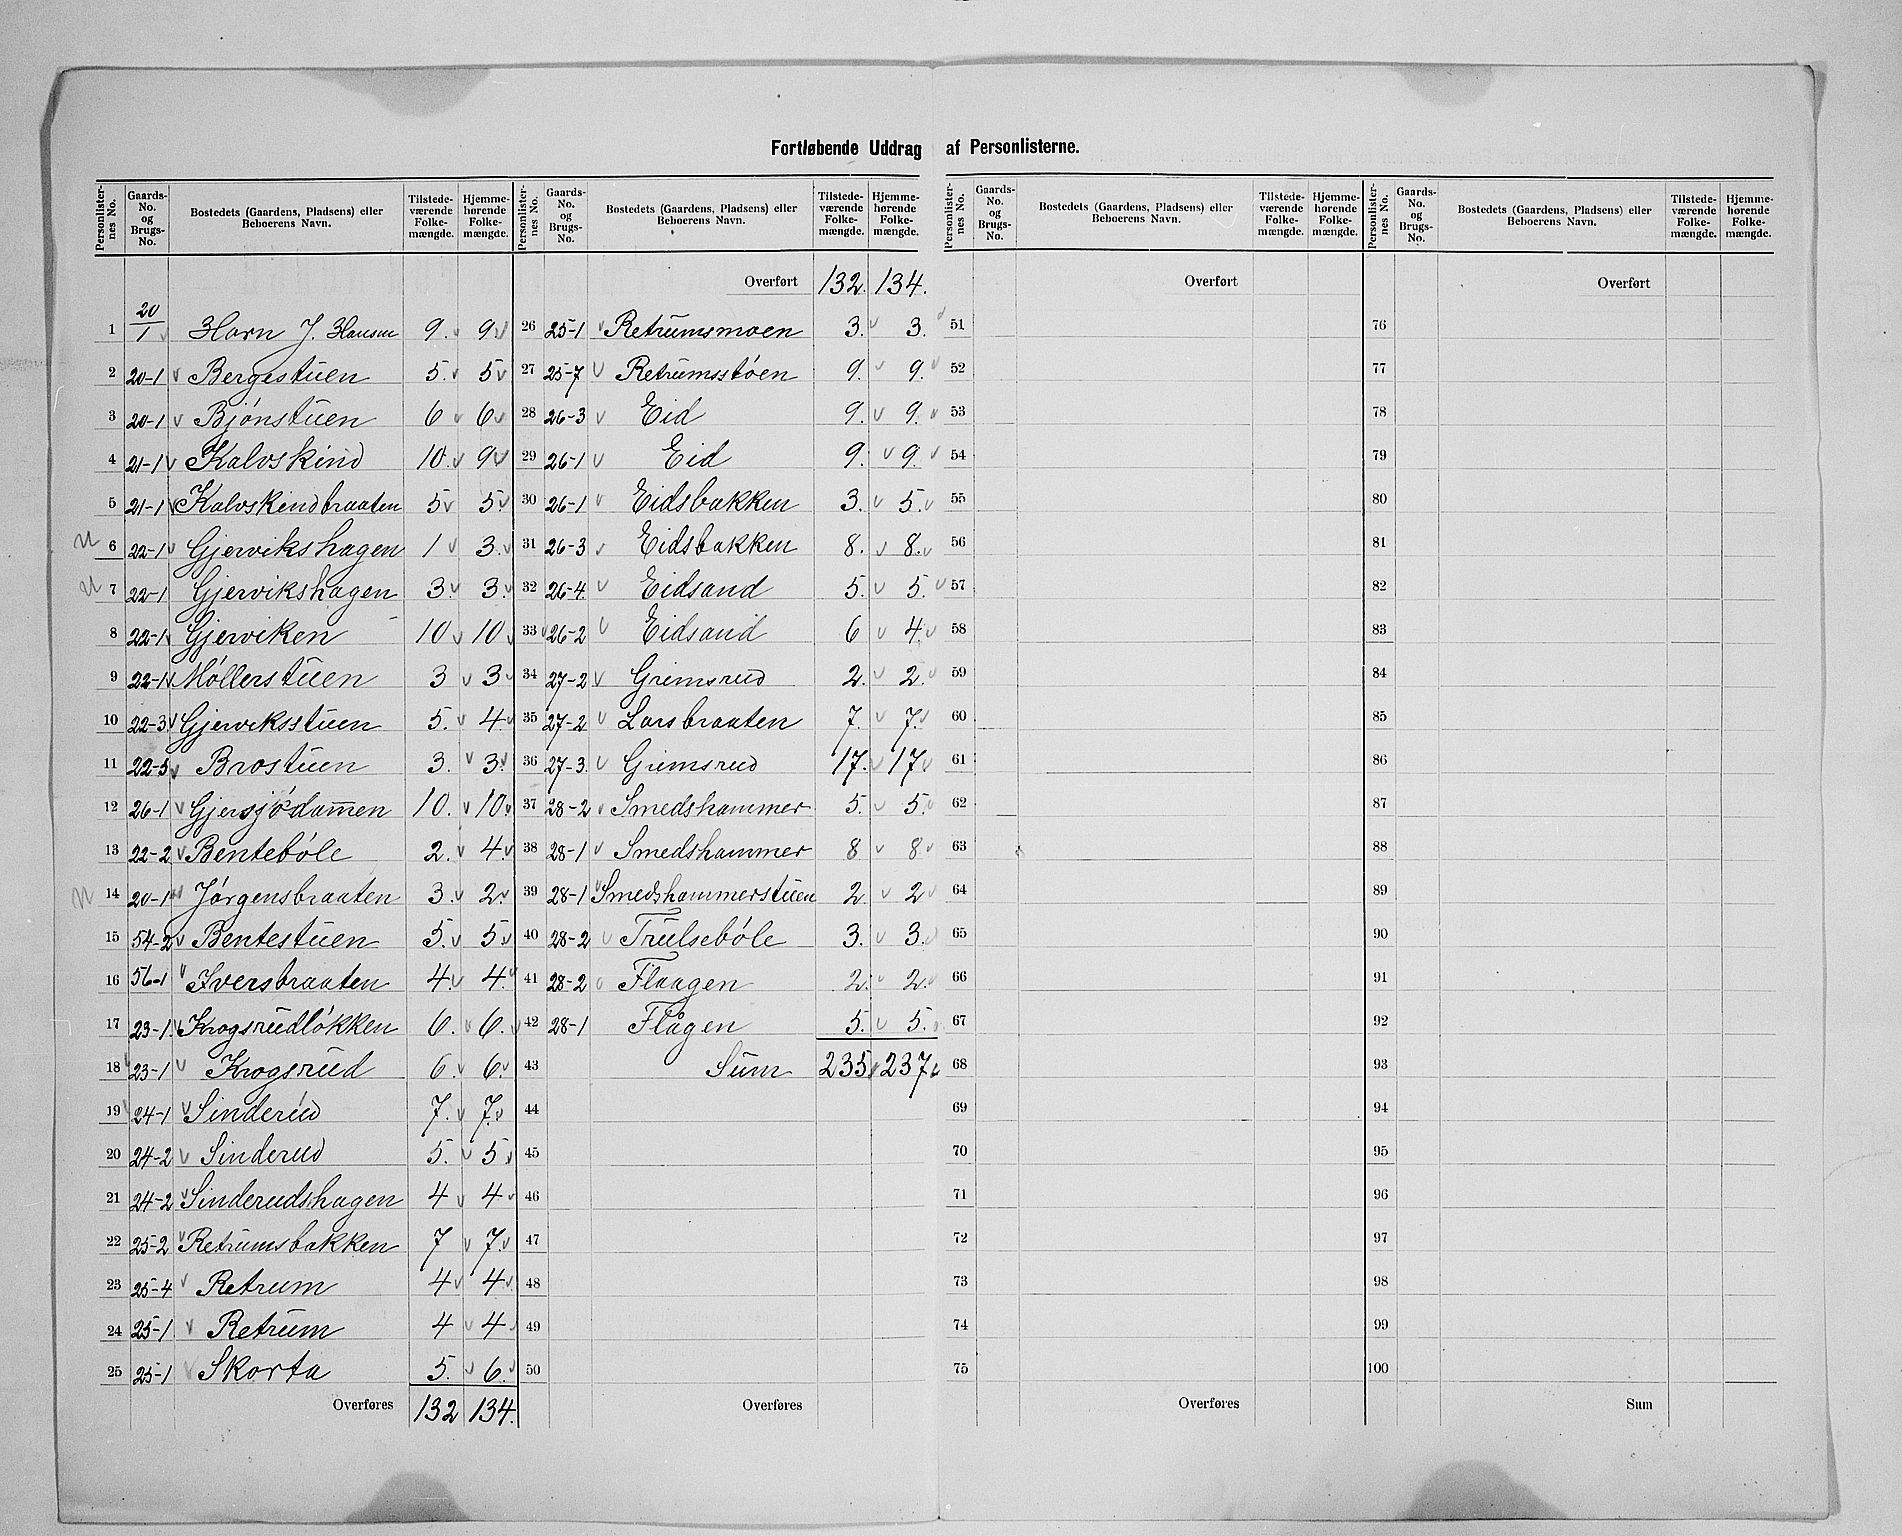 Fortløbende Uddrag af Personlisterne.
Personlister-nes No. | Gaards-No. og Brugs-No. | Bostedets (Gaardens, Pladsens) eller Beboerens Navn. | Tilstede-værende Folke-mængde. | Hjemme-hørende Folke-mængde.
1 | 20/1 | Horn J. Hansen | 9. | 9.
2 | 20-1 | Bergestuen | 5. | 5
3 | 20-1 | Bjønstuen | 6 | 6
4 | 21-1 | Kalvskind | 10. | 9
5 | 21-1 | Kalvskindbraaten | 5 | 5.
u 6 | 22-1 | Gjervikshagen | 1 | 3.
u 7 | 22-1 | Gjervikshagen | 3. | 3.
8 | 22-1 | Gjerviken | 10 | 10
9 | 22-1 | Møllerstuen | 3 | 3
10 | 22-3 | Gjerviksstuen | 5. | 4.
11 | 22-5 | Brostuen | 3. | 3.
12 | 26-1 | Gjersjødam̅en | 10. | 10.
13 | 22-2 | Bentebøle | 2. | 4.
u 14 | 20-1 | Jørgensbraaten | 3. | 2.
15 | 54-2 | Bentestuen | 5. | 5.
16 | 56-1 | Iversbraaten | 4. | 4.
17 | 23-1. | Krogsrudløkken | 6. | 6.
18 | 23-1 | Krogsrud | 6. | 6.
19 | 24-1 | Sinderud | 7. | 7.
20 | 24-2 | Sinderud | 5. | 5.
21 | 24-2 | Sinderudshagen | 4 | 4
22 | 25-2 | Retrumsbakken | 7 | 7.
23 | 25-4 | Retrum | 4 | 4.
24 | 25-1 | Retrum | 4 | 4
25 | 25-1 | Skorta | 5. | 6.
Overføres | 132 | 134.
Personlister-nes No. | Gaards-No. og Brugs-No. | Bostedets (Gaardens, Pladsens) eller Beboerens Navn. | Tilstede-værende Folke-mængde. | Hjemme-hørende Folke-mængde.
Overført | 132. | 134.
26 | 25-1 | Retrumsmoen | 3. | 3.
27 | 25-7 | Retrumsstøen | 9. | 9.
28 | 26-3 | Eid | 9. | 9.
29 | 26-1 | Eid | 9. | 9.
30 | 26-1 | Eidsbakken | 3. | 5.
31 | 26-3 | Eidsbakken | 8. | 8.
32 | 26-4. | Eidsand | 5. | 5.
33 | 26-2 | Eidsand | 6 | 4.
34 | 27-2 | Grimsrud | 2. | 2.
35 | 27-2 | Larsbraaten | 7. | 7.
36 | 27-3. | Grimsrud | 17. | 17
37 | 28-2 | Smedshammer | 5. | 5.
38 | 28-1 | Smedshammer | 8 | 8
39 | 28-1 | Smedshammerstuen | 2 | 2
40 | 28-2 | Trulsebøle | 3. | 3.
41 | 28-2 | Flaagen | 2. | 2.
42 | 28-1 | Flågen | 5. | 5.
43 | Sum | 235 | 237
44
45
46
47
48
49
50
Overføres
Personlister-nes No. | Gaards-No. og Brugs-No. | Bostedets (Gaardens, Pladsens) eller Beboerens Navn. | Tilstede-værende Folke-mængde. | Hjemme-hørende Folke-mængde.
Overført
51
52
53
54
55
56
57
58
59
60
61
62
63
64
65
66
67
68
69
70
71
72
73
74
75
Overføres
Personlister-nes No. | Gaards-No. og Brugs-No. | Bostedets (Gaardens, Pladsens) eller Beboerens Navn. | Tilstede-værende Folke-mængde. | Hjemme-hørende Folke-mængde.
Overført
76
77
78
79
80
81
82
83
84
85
86
87
88
89
90
91
92
93
94
95
96
97
98
99
100
Sum